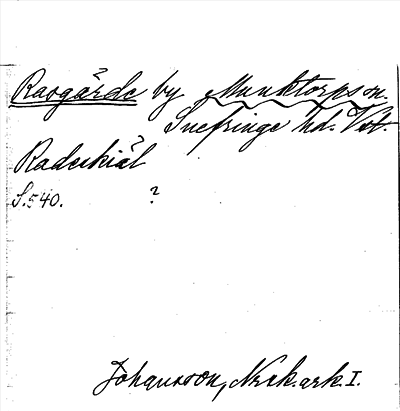 Ravgärde by Munktorps sn.
Snefringe hd. Vst.
Raduhiäl
S. 540. ?
Johansson, Nrk. ark. I.